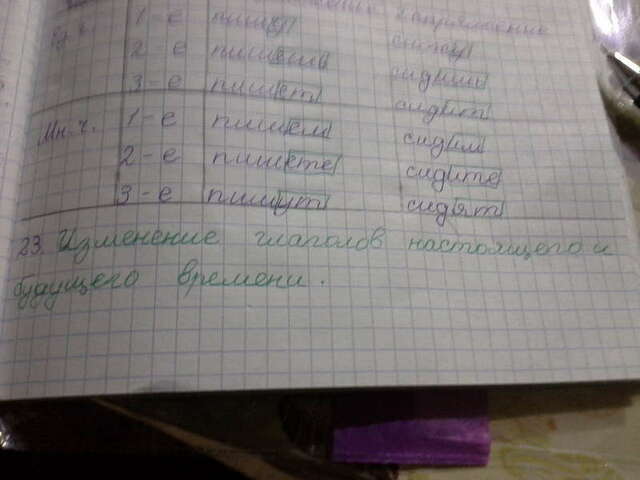 спряжение
1-е пишу сижу
2-е пишешь сидишь
3-е пишет сидит
Мн.ч. 1-е пишем сидим
2-е пишете сидите
3-е пишут сидят
23. Изменение глаголов настоящего и
будущего времени.